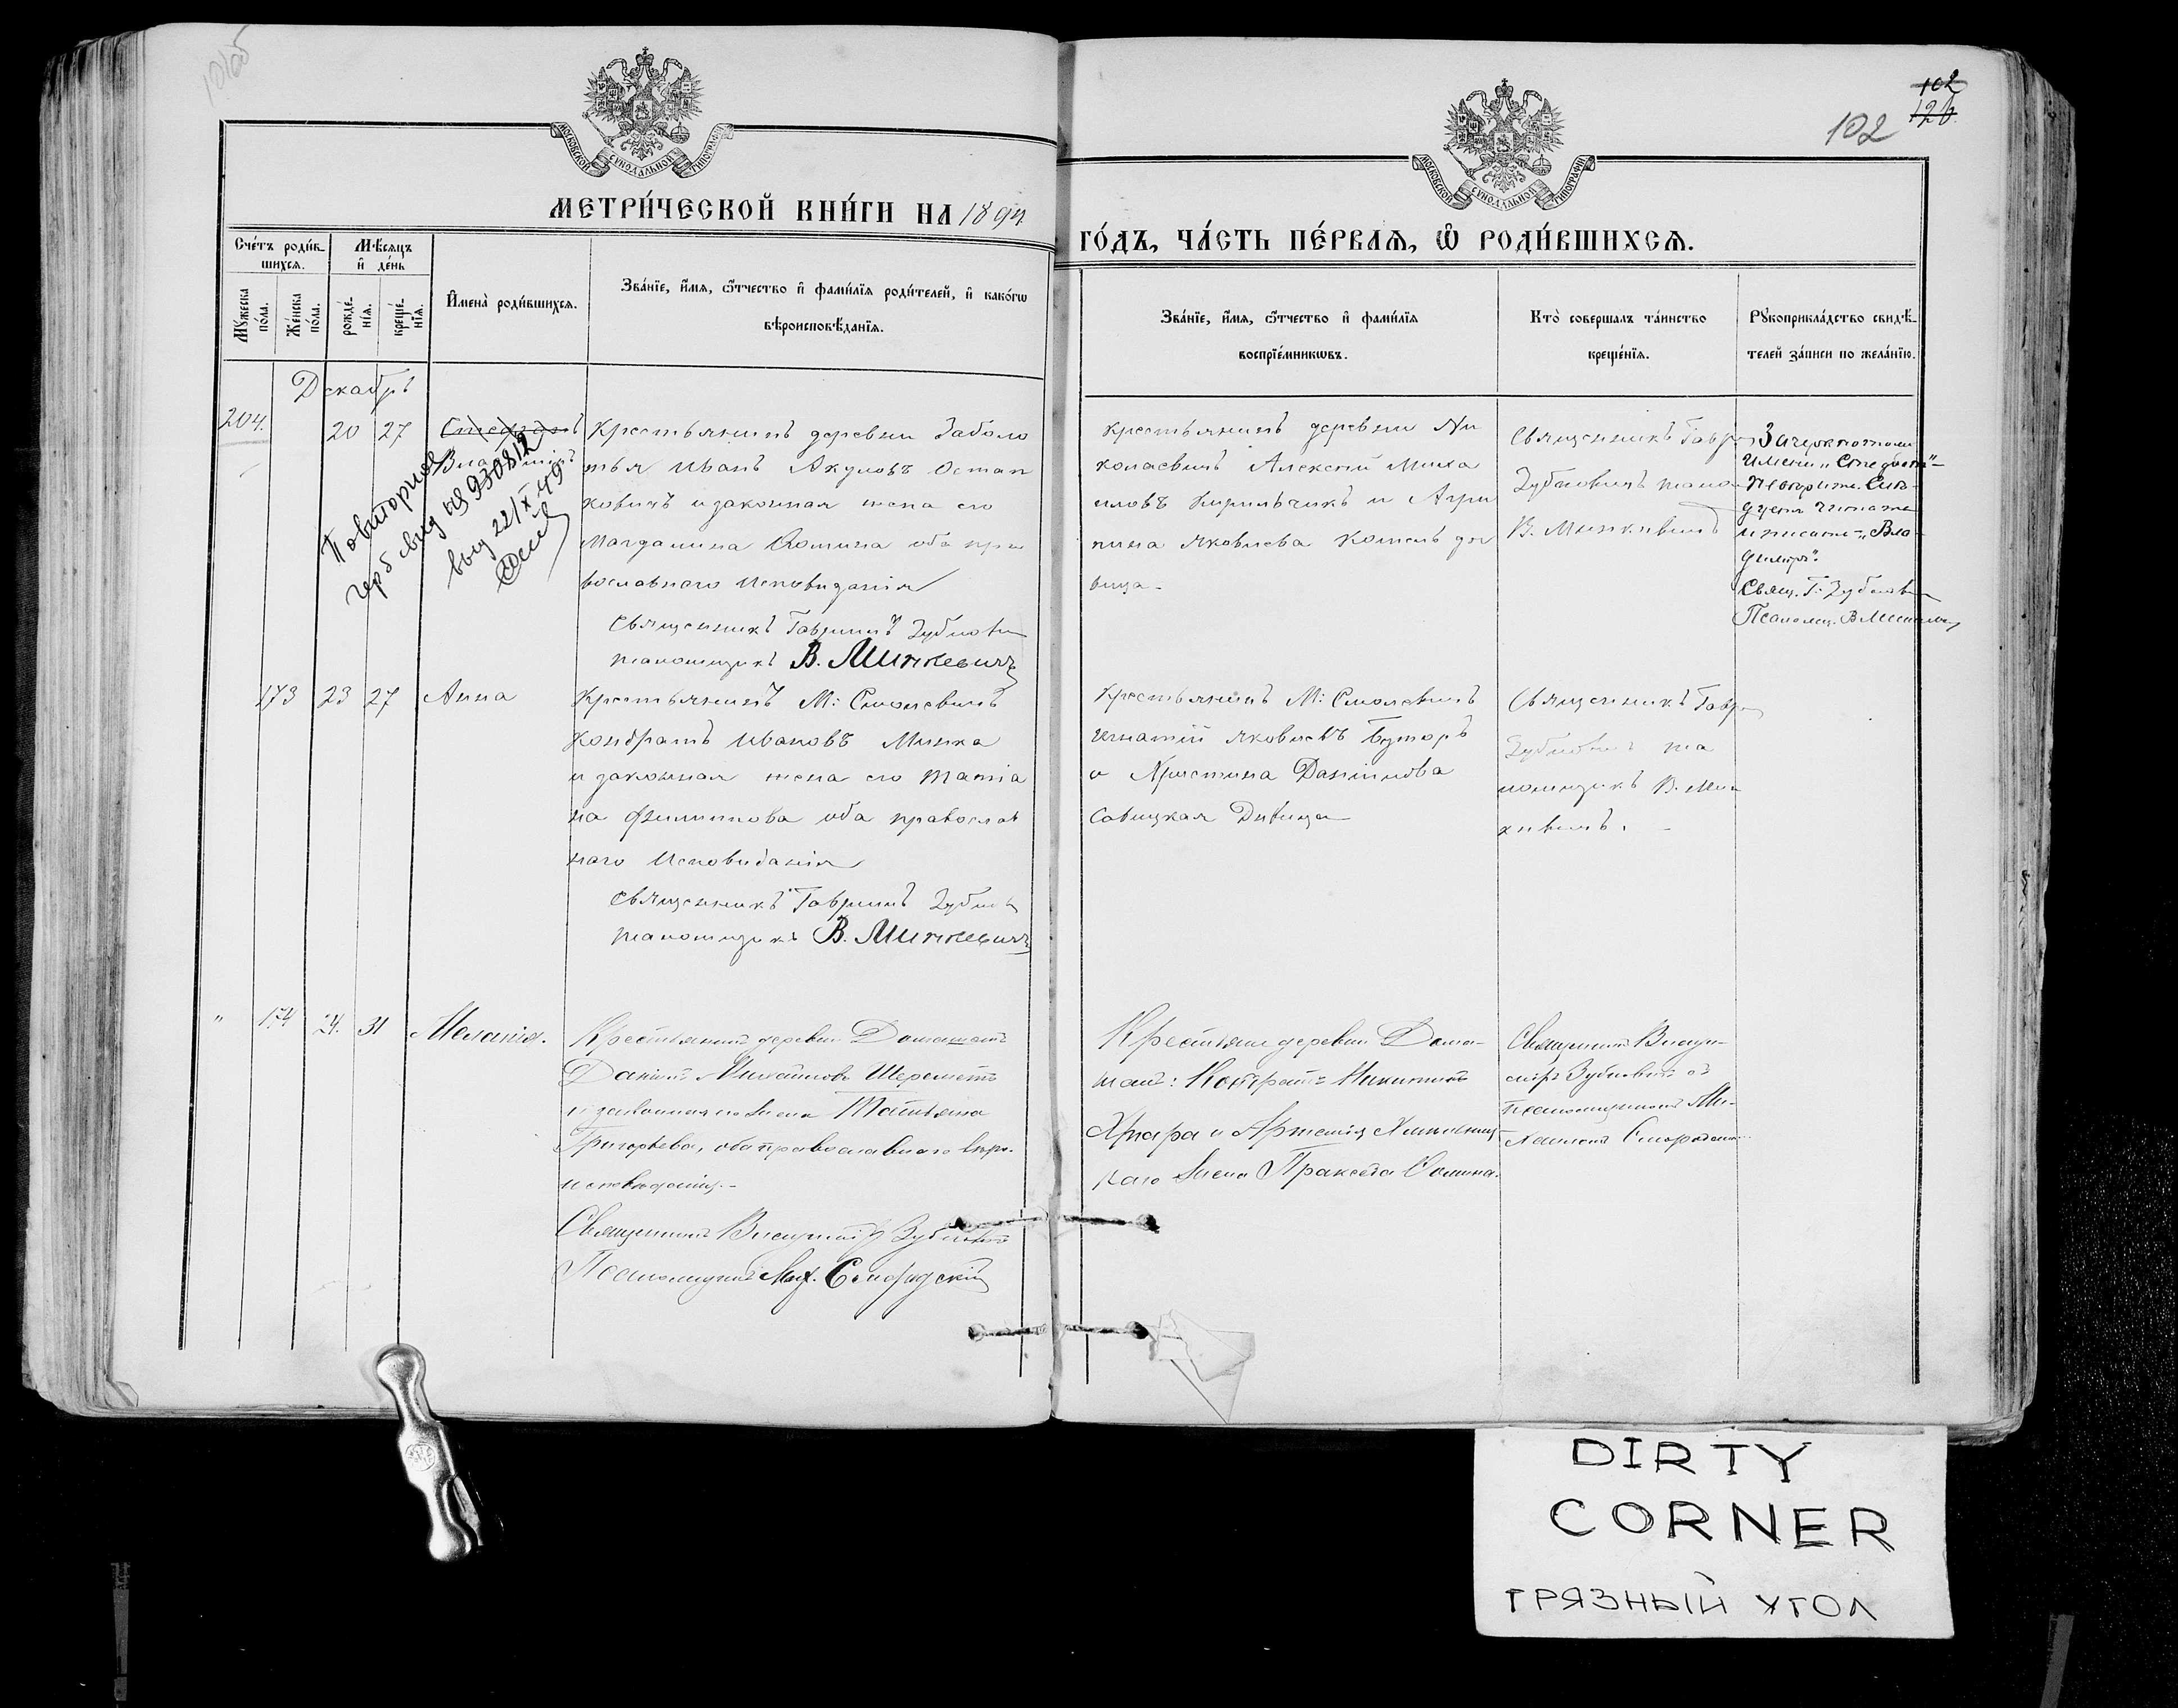 102
102
126
МОСКОВСКОЙ СУНОДАЛЬНОЙ ТИПОГРАФІИ
МОСКОВСКОЙ СУНОДАЛЬНОЙ ТИПОГРАФІИ
МЕТРИ́ЧЕСКОЙ КНИ́ГИ НА 1894
ГО́ДЪ, ЧА́СТЬ ПЕ́РВАЯ, Ѡ РОДИ́ВШИХСЯ.
Сче́тъ роди́в-
шихся.
Мѣсяцъ
и де́нь
Му́жеска по́ла.
Же́нска по́ла.
рожде́-
нія.
креще́-
нія.
Имена̀ роди́вшихся.
Зва́ніе, и́мя, о́тчество и фами́лія роди́телей, и како́гѡ
вѣроисповѣ́данія.
Зва́ніе, и́мя, о́тчество и фами́лія
воспріе́мникѡвъ.
Кто̀ соверша́лъ та́инство
креще́нія.
Рукоприкла́дство свидѣ́-
телей за́писи по жела́нію.
Декабрь
204.
20 27
Стефанъ
Владиміръ
Повторное
герб свид на 930812
выд 22/X 49
Крестьянинъ деревни Заболо
тья Иванъ Акуловъ Остап
ковичъ и законная жена его
Магдалина Фомина оба пра
вославного Исповиданія
Священникъ Гавриилъ Зубкови
псаломщикъ В. Минкевичъ
Крестьянинъ деревни Ни
колаевичъ Алексій Миха
иловъ Кирильчикъ и Агри
пина Яковлева
вица
Священникъ Гавр
Зубковичъ псало
В. Минкевичъ
Зачеркнотому
имени „Стефанъ"
не верить. Слѣ-
дуетъ читать
и писать „Вла-
димиръ".
Свящ. Г. Зубкови
Псаломщ. В. Минкевич
173 23 27 Анна
Крестьянинъ М: Смолевичъ
Кондратъ Ивановъ Минка
и законная жена его Татіа
на Филиппова оба православ
наго Исповиданія
Священникъ Гавриилъ Зубков
псаломщикъ В. Минкевичъ
Крестьянинъ М: Смолевичъ
Игнатій Яковлевъ Буторъ
и Христина Даніилова
Савицкая Дивица
Священникъ Гавр
Зубкович пса
ломщикъ В. Мин
кевичъ.
" 174 24. 31 Меланія.
Крестьянинъ деревни Домашанъ
Даніилъ Михаиловъ Шереметъ
и законная его жена Татьяна
Григорьева, оба православного вѣро-
исповѣданія.
Священникъ Зубковичъ
Псаломщикъ Мих. Смородскій
Крестьяне деревни Дома-
шанъ: Кондратъ Никитинъ
и Артемія
каго жена Пракседа Фомина.
Священникъ
Зубковичъ съ
псаломщикомъ Ми-
хаиломъ Смородским
DIRTY
CORNER
ГРЯЗНЫЙ УГОЛ